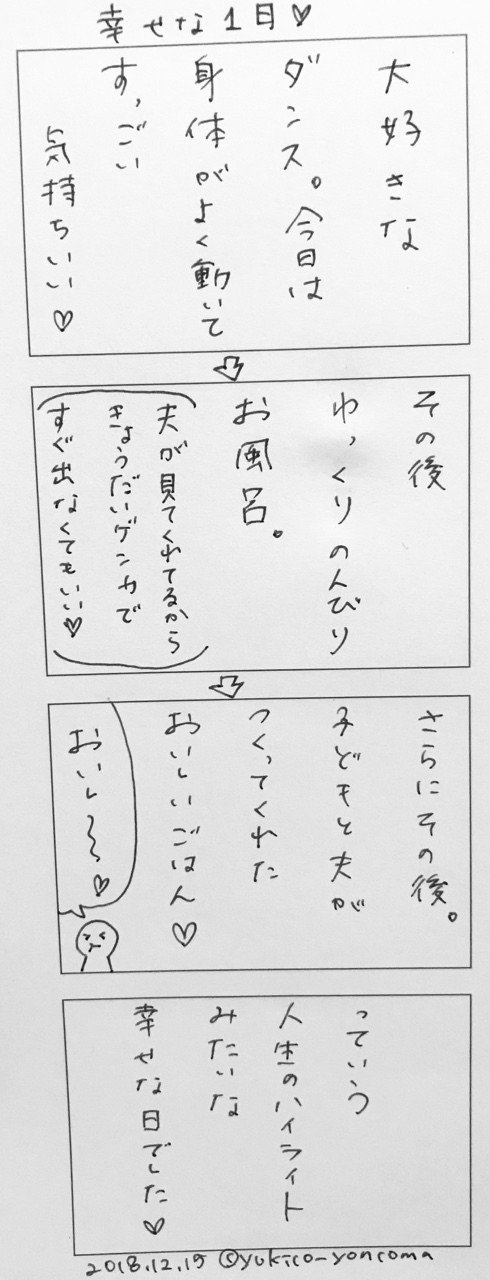 幸せな1日♡
大好きな
ダンス。今日は
身体がよく動いて
すっごい
気持ちいい♡
その後
ゆっくりのんびり
お風呂。
(夫が見てくれてるから
きょうだいゲンカで
すぐ出なくてもいい♡)
さらにその後。
子どもと夫が
つくってくれた
おいしいごはん♡
おいし〜〜♡
っていう
人生のハイライト
みたいな
幸せな日でした♡
2018.12.15 ©yukico_yoncoma